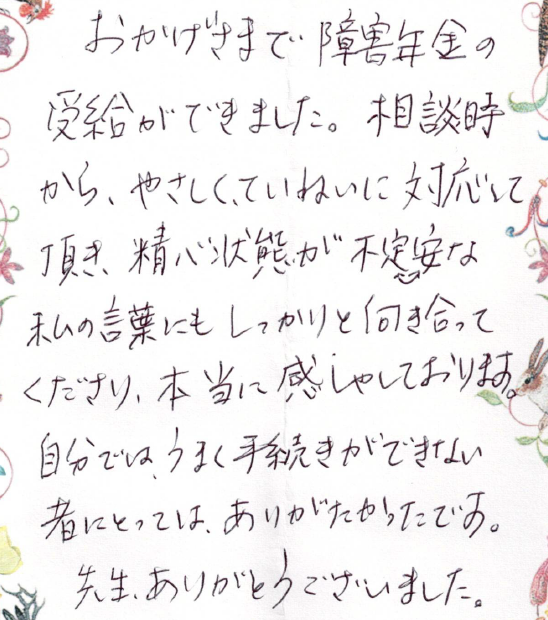 おかげさまで障害年金の
受給ができました。相談時
から、やさしく、ていねいに対応して
頂き、精心状態が不定安な
私の言葉にもしっかりと向き合って
くださり、本当に感しゃしております。
自分では、うまく手続きができない
者にとっては、ありがたかったです。
先生、ありがとうございました。